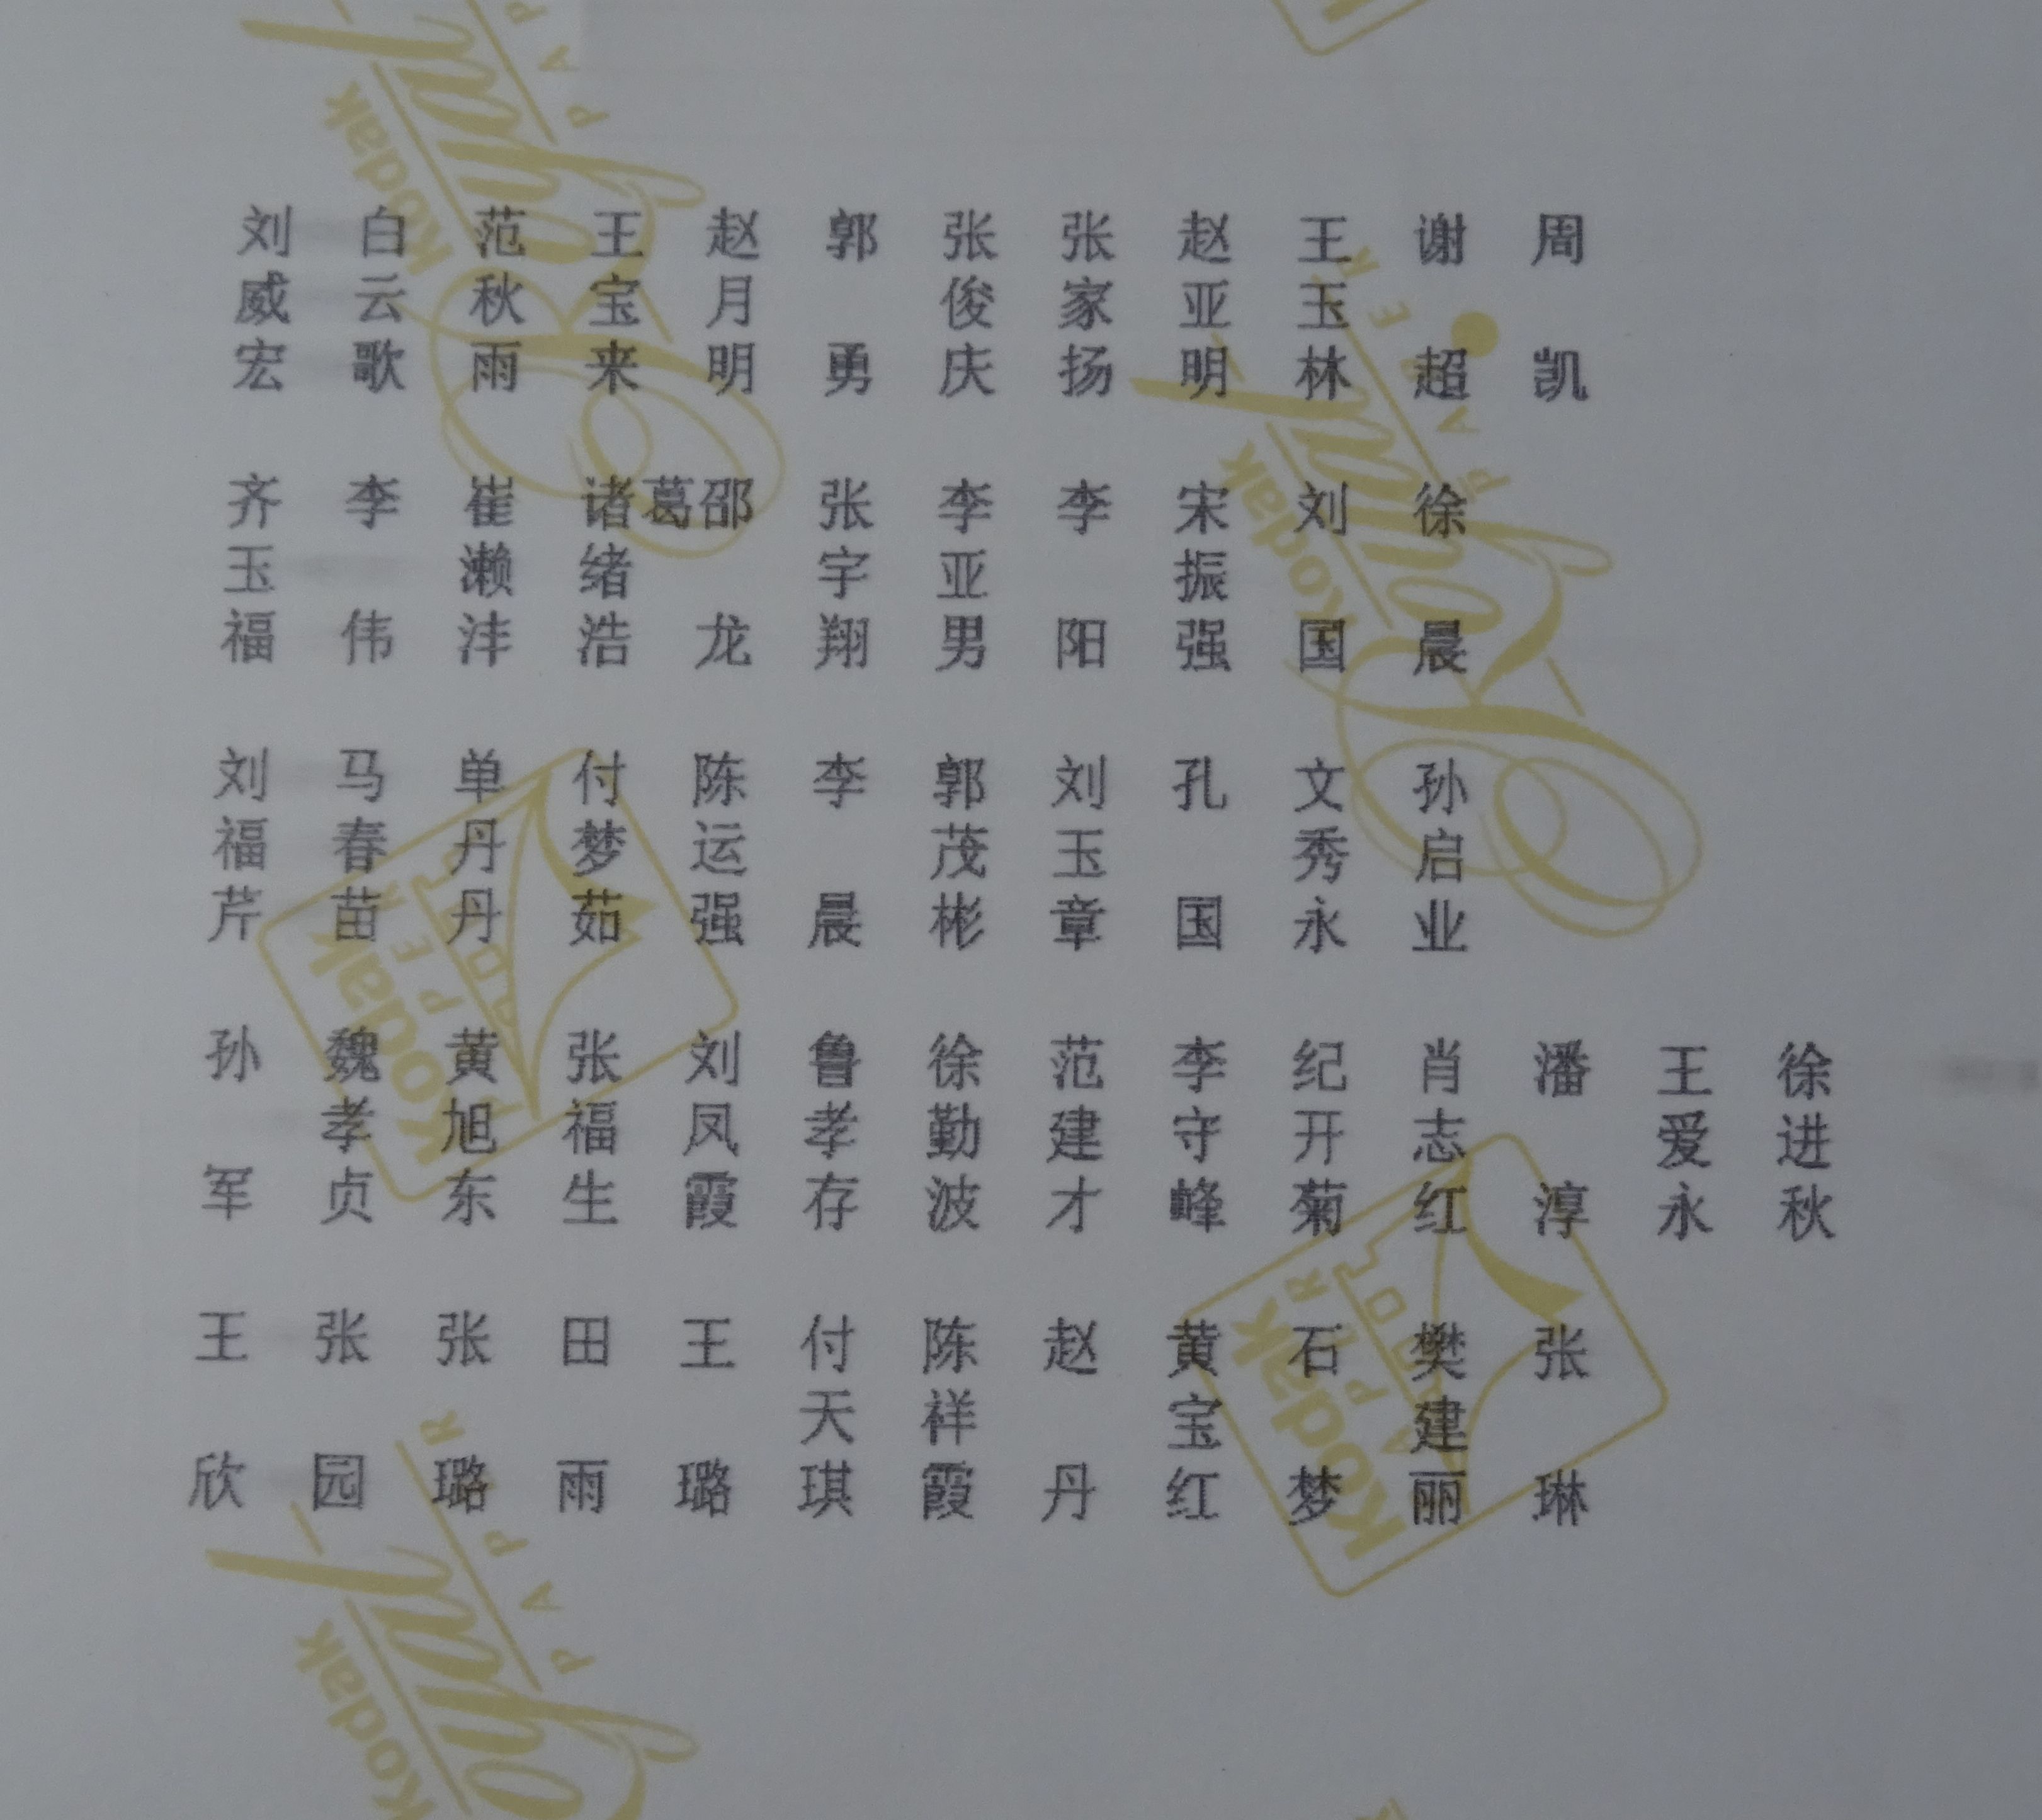 刘威宏
白云歌
范秋雨
王宝来
赵月明
郭勇
张俊庆
张家扬
赵亚明
王玉林
谢超
周凯
齐玉福
李伟
崔濑沣
诸葛绪浩
邵龙
张宇翔
李亚男
李阳
宋振强
刘国
徐晨
刘福芹
马春苗
单丹丹
付梦茹
陈运强
李晨
郭茂彬
刘玉章
孔国
文秀永
孙启业
孙军
魏孝贞
黄旭东
张福生
刘凤霞
鲁孝存
徐勤波
范建才
李守峰
纪开菊
肖志红
潘淳
王爱永
徐进秋
王欣
张园
张璐
田雨
王璐
付天琪
陈祥霞
赵丹
黄宝红
石梦
樊建丽
张琳
Kodak
PAPER
Kodak
PAPER
Kodak
PAPER
Kodak
PAPER
Kodak
PAPER